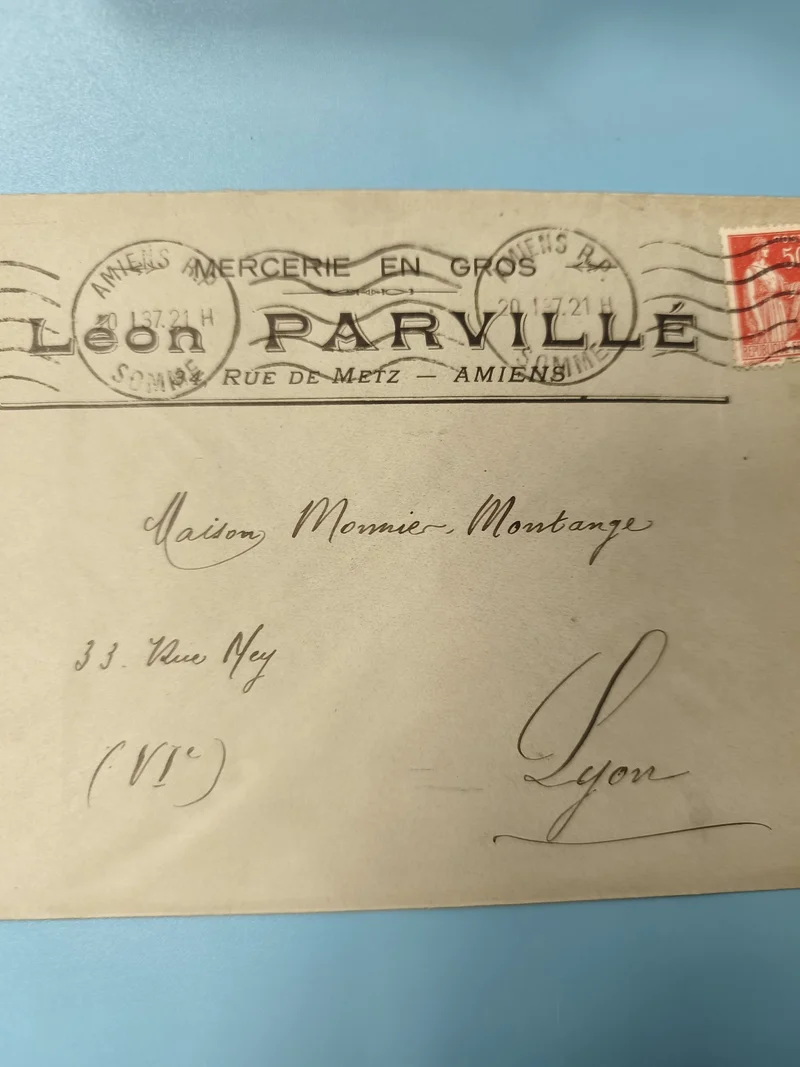 MERCERIE EN GROS
Léon PARVILLÉ
34, RUE DE METZ — AMIENS
AMIENS R.P.
20 1 37. 21 H
SOMME
AMIENS R.P.
20 1 37. 21 H
SOMME
50
Maison Monnier-Montange
33. Rue Ney
(VIe)
Lyon